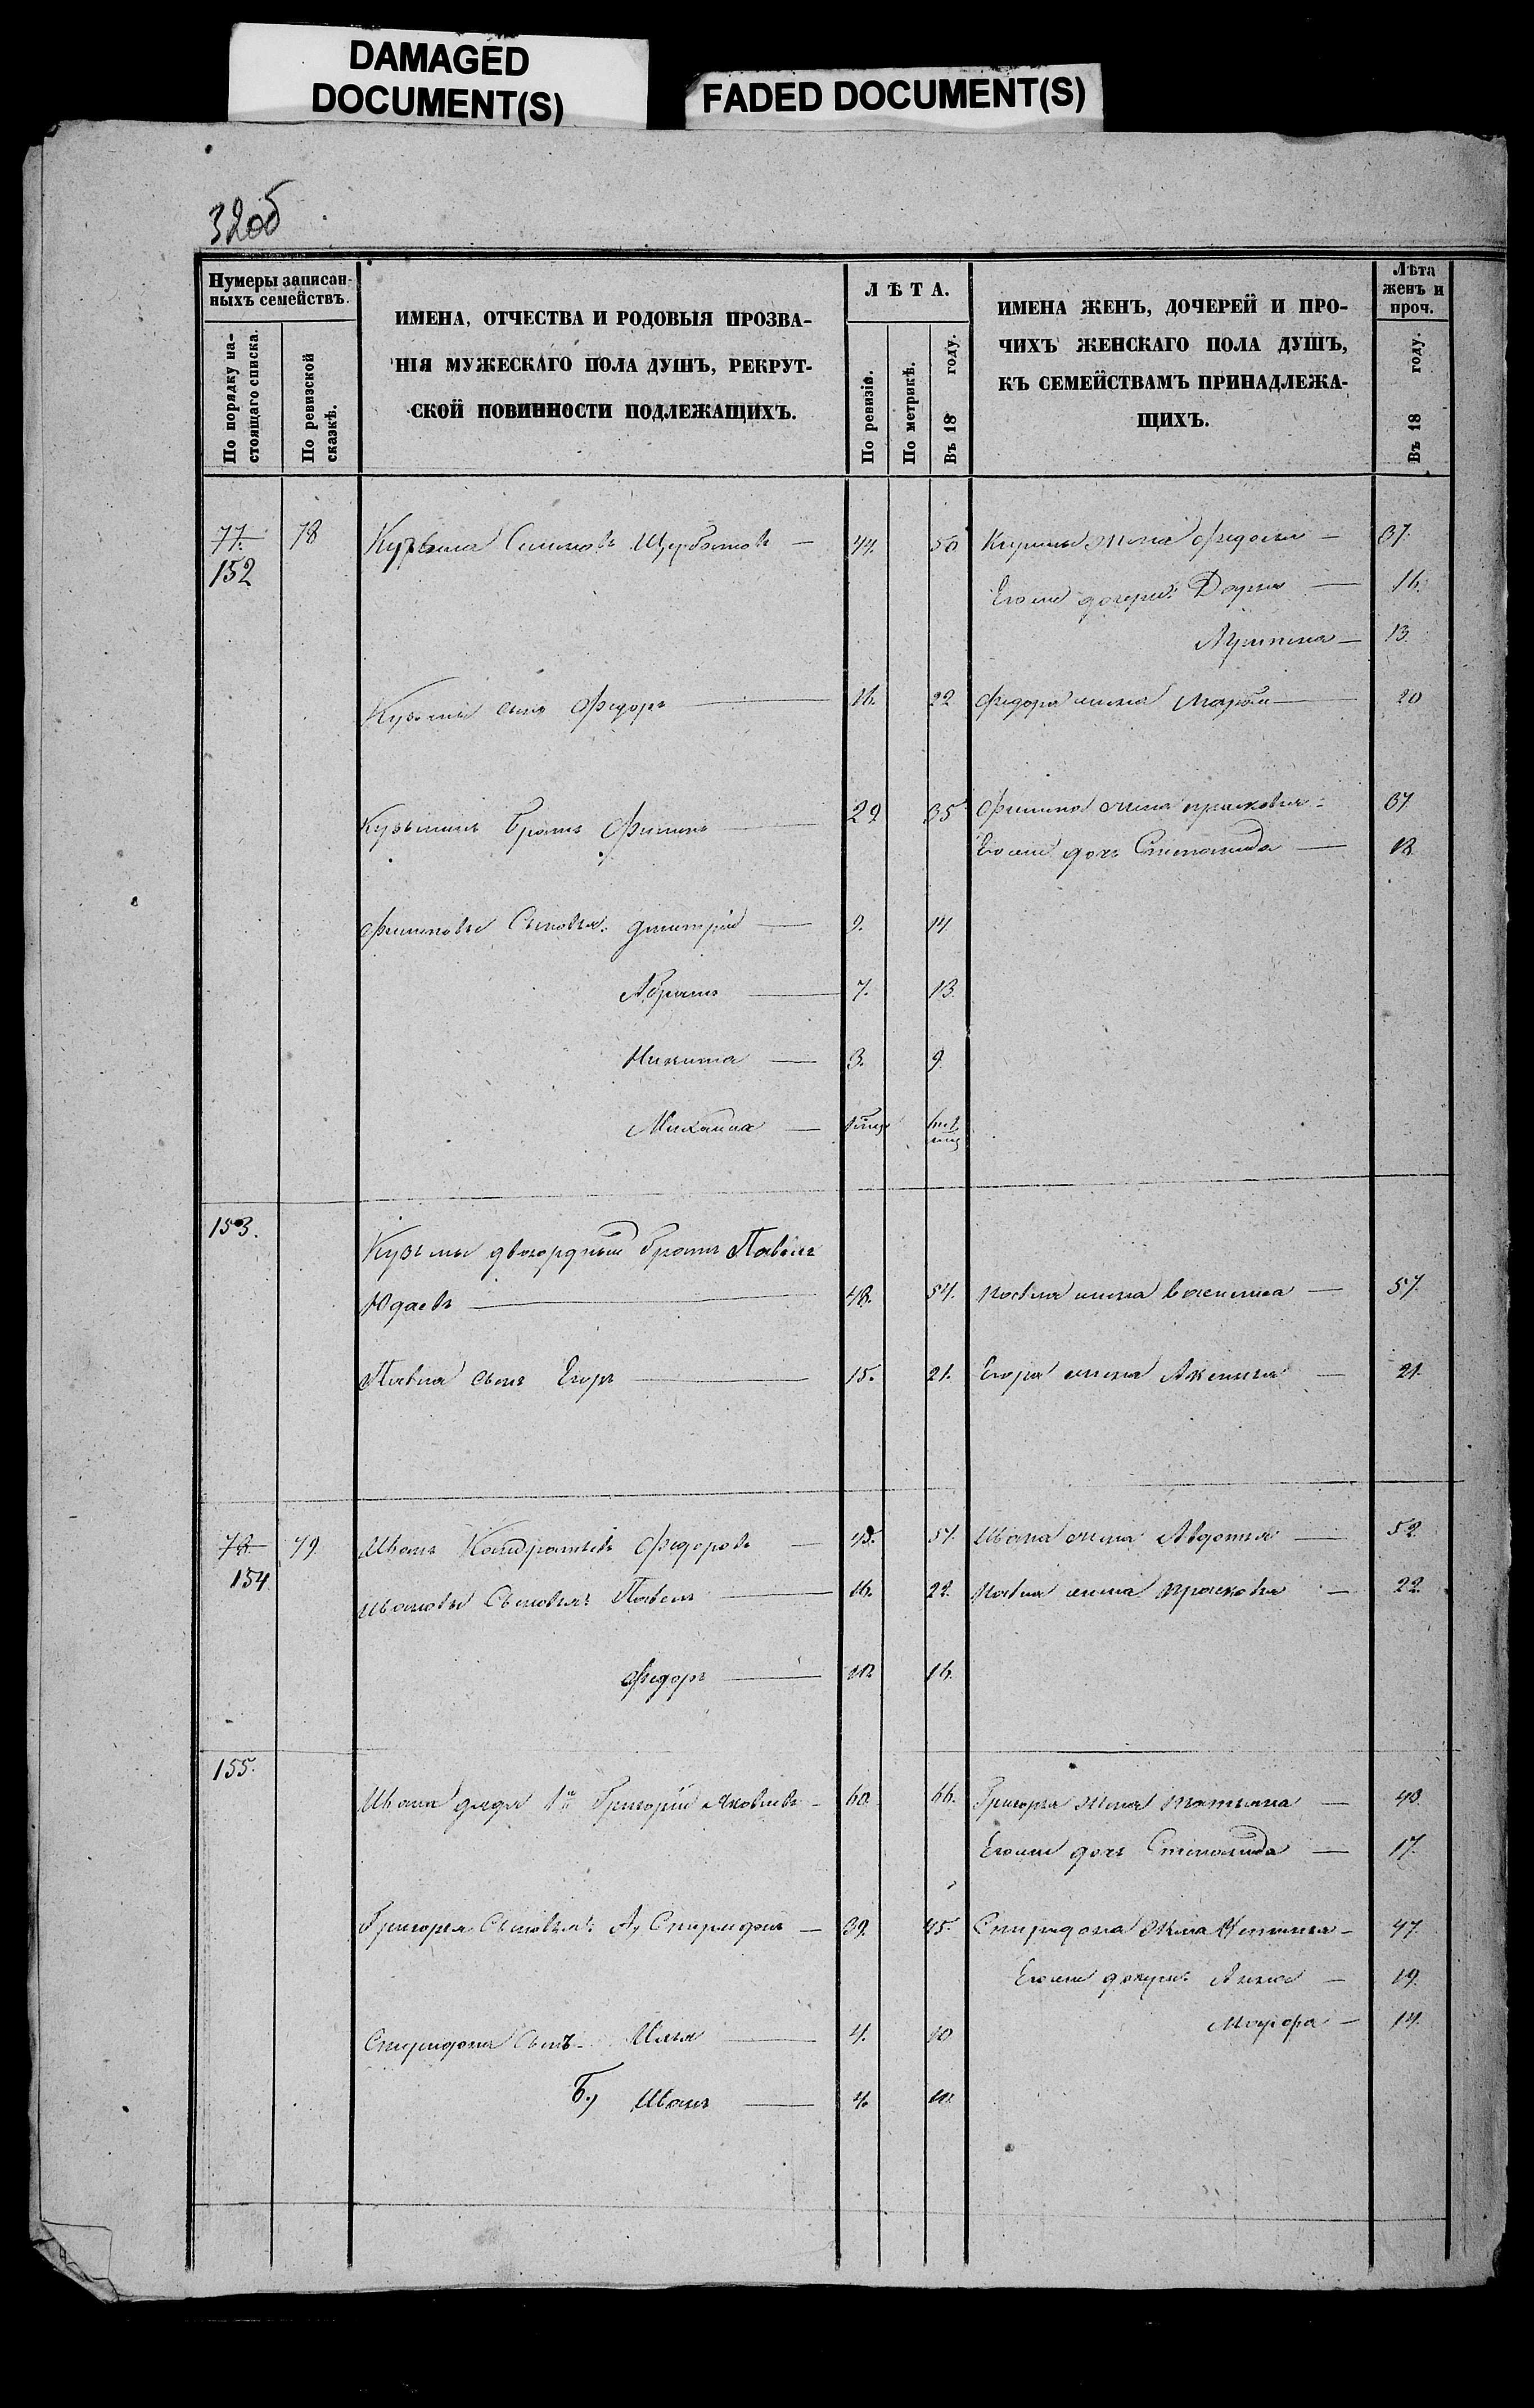 DAMAGED
DOCUMENT(S)
FADED DOCUMENT(S)
32об
Нумеры записан-
ныхъ семействъ.
По порядку на-
стоящаго списка.
По ревизской
сказкѣ.
ИМЕНА, ОТЧЕСТВА И РОДОВЫЯ ПРОЗВА-
НІЯ МУЖЕСКАГО ПОЛА ДУШЪ, РЕКРУТ-
СКОЙ ПОВИННОСТИ ПОДЛЕЖАЩИХЪ.
ЛѢТА.
По ревизіи.
По метрикѣ.
Въ 18 году.
ИМЕНА ЖЕНЪ, ДОЧЕРЕЙ И ПРО-
ЧИХЪ ЖЕНСКАГО ПОЛА ДУШЪ,
КЪ СЕМЕЙСТВАМЪ ПРИНАДЛЕЖА-
ЩИХЪ.
Лѣта
женъ и
проч.
Въ 18 году.
77. 78 Кузьма Щербатовъ — 44. 50 жена — 37.
152
Его же дочери: — 16.
13.
Кузьмы сынъ Федоръ — 16. 22 Федора жена Марья — 20
Кузьминъ братъ Филипъ — 29 35 Филипа жена Прасковья 37
Его же дочь Степанида — 12
Филиповы Сыновья: Дмитрій — 9. 14
Абрамъ — 7. 13.
Никита — 3. 9.
Михаила —
153.
Кузьмы двоюродный братъ Павелъ
Юдаевъ — 48. 54. Павла жена Василиса — 57.
Павла сынъ Егоръ — 15. 21. Егора жена Аксинья — 21.
78. 79. Иванъ Кондратьевъ Федоровъ — 45. 51. Ивана жена Авдотья — 52.
154
Ивановы Сыновья: Павелъ — 16. 22. Павла жена Прасковья — 22.
Федоръ — 10 16.
155.
Ивана дядя 1й Григорій Яковлевъ — 60. 66. Григорья жена Татьяна — 48.
Его же дочь Степанида — 17.
Григорья Сыновья: А, Спиридонъ — 39. 45. Спиридона жена Устинья — 47.
Его же дочери: Анна — 19.
Мавра — 14.
Спиридона Сынъ Илья — 4. 10
Б, Иванъ — 4. 10.